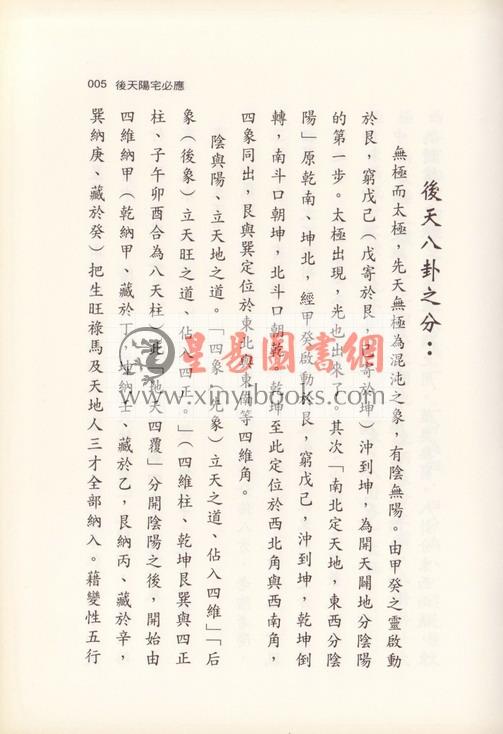 005 後天陽宅必應
後天八卦之分：
無極而太極，先天無極為混沌之象，有陰無陽。由甲癸之靈啟動
於艮，窮戊己（戊寄於艮，己寄於坤）沖到坤，為開天闢地分陰陽
的第一步。太極出現，光也出來了。其次「南北定天地，東西分陰
陽」原乾南、坤北，經甲癸啟動艮，窮戊己，沖到坤，乾坤倒
轉，南斗口朝坤，北斗口朝乾。乾坤至此定位於西北角與西南角，
四象同出，艮與巽定位於東北與東南等四維角。
陰與陽、立天地之道。「四象（先象）立天之道、佔入四維」「后
象（後象）立天旺之道、佔入四正。」（四維柱、乾坤艮巽與四正
柱、子午卯酉合為八天柱）此「地天四覆」分開陰陽之後，開始由
四維納甲（乾納甲、藏於丁，坤納壬、藏於乙，艮納丙、藏於辛，
巽納庚、藏於癸）把生旺祿馬及天地人三才全部納入。藉變性五行
星易圖書網
www.xinyibooks.com